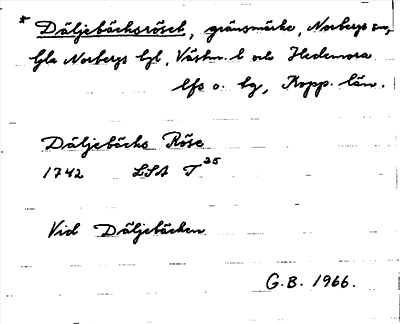 * Däljebäcksröset, gränsmärke, Norbergs sn,
Gla Norbergs bgl, Västm. l och Hedemora
lfs o. bg, Kopp. län.
Däljebäcks Röse
1742 LSA T 35
Vid Däljebäcken
G.B. 1966.